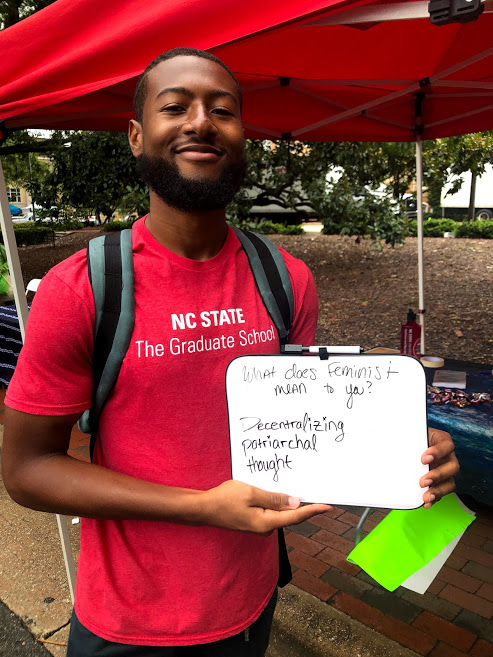 NC STATE
The Graduate School
What does Feminist
mean to you?
Decentralizing
patriarchal
thought